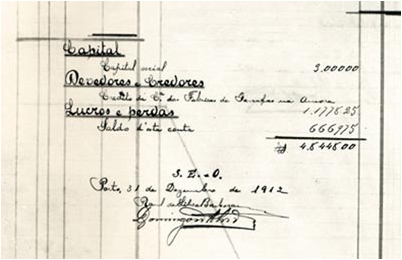 Capital
Capital social 3.00000
Devedores e Credores
Credito da Cª das Fabricas de Garrafas na Amora 1.177825
Lucros e perdas
Saldo d'esta conta 666,975
4.844800
S. E. e O.
Porto, 31 de Dezembro de 1912
Raul da Silva Barbosa
Domingos